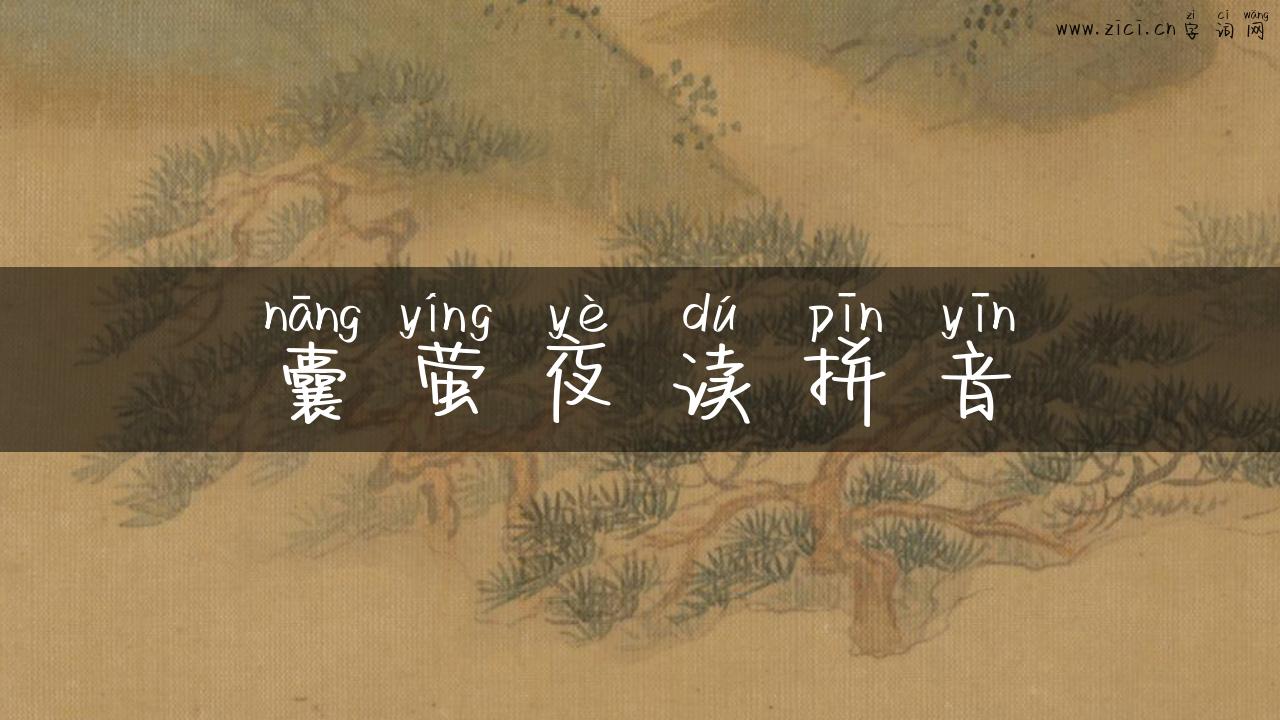 zì cí wǎng
www.zici.cn 字 词 网
nāng yíng yè dú pīn yīn
囊 萤 夜 读 拼 音